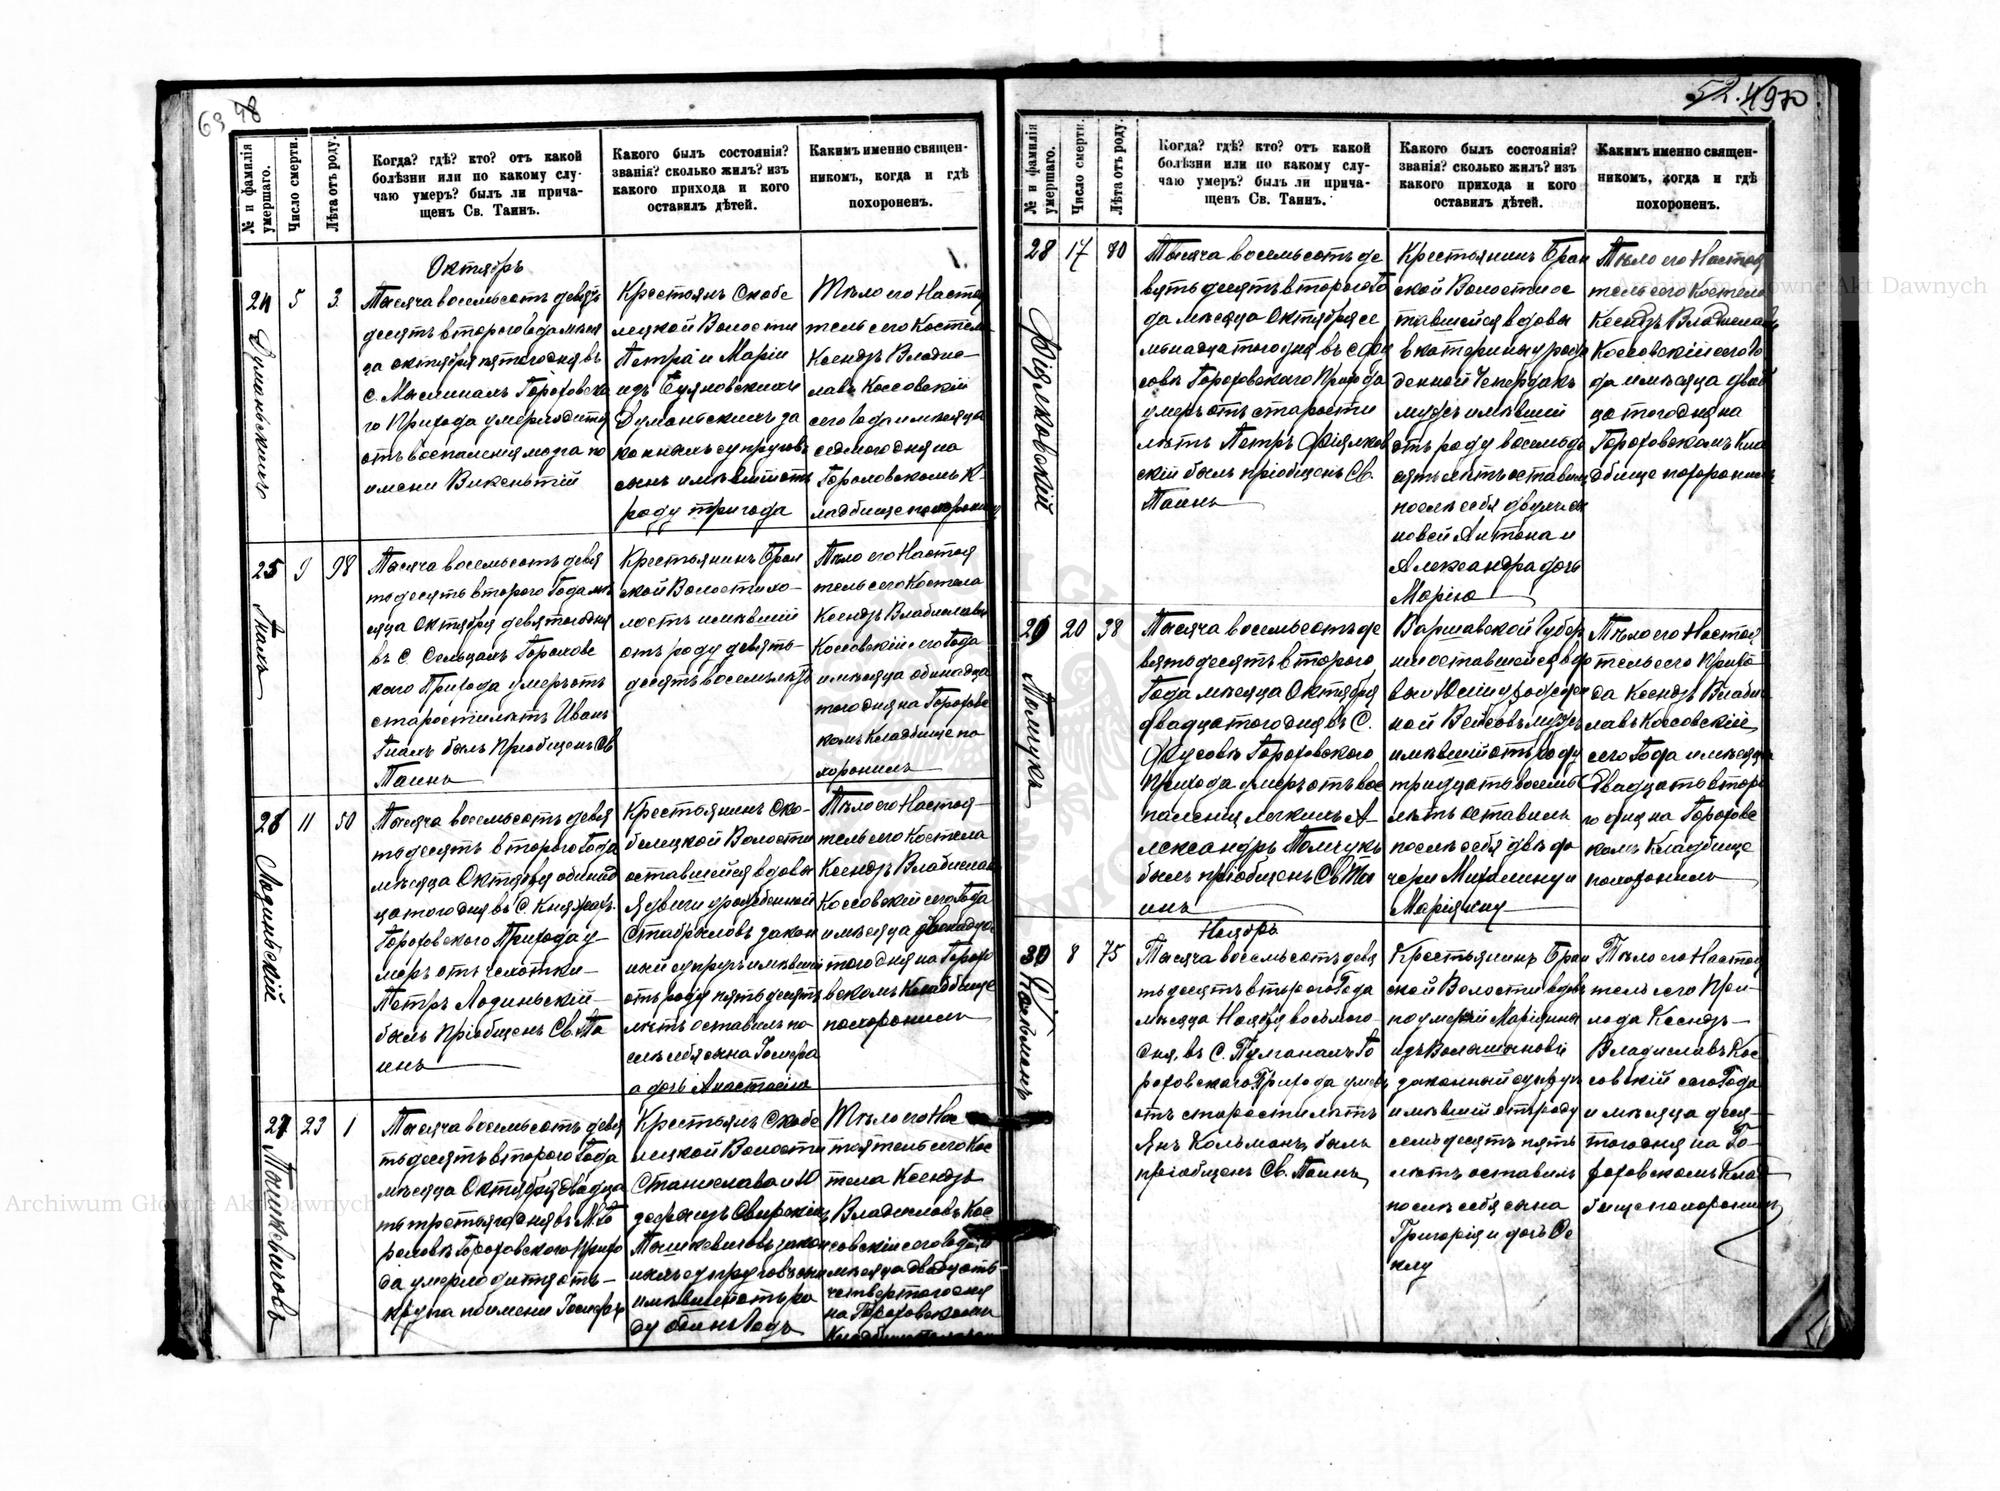 63 98
№ и фамилія умершаго.
Число смерти.
Лѣта отъ роду.
Когда? гдѣ? кто? отъ какой
болѣзни или по какому слу-
чаю умеръ? былъ ли прича-
щенъ Св. Таинъ.
Какого былъ состоянія?
званія? сколько жилъ? изъ
какого прихода и кого
оставилъ дѣтей.
Какимъ именно священ-
никомъ, когда и гдѣ
похороненъ.
Октябрь
24
5
3
Тысяча восемьсотъ девять
десятъ второго года мѣся
ца октября пятого дня въ
с. Горохоска
го Прихода умерло дитя
отъ воспаления мозга по
имени Викентій
Крестьянъ Скобе
лецкой Волости
Петра и Маріи
изъ
за
конныхъ супруговъ
сынъ имѣвшій отъ
роду три года
Тѣло его Настоя
тель сего Костела
Ксендзъ Владис-
лавъ Коссовскій
сего Года и мѣсяца
седмого дня на
Гороховскомъ К-
ладбище похоронилъ
25
9
98
Тысяча восемьсотъ девя
тьдесятъ второго Года мѣ
сяца Октября девятого дня
въ С. Сельцахъ Горохове
кого Прихода умеръ отъ
старости лѣтъ Иванъ
былъ Пріобщенъ Св
Таинъ
Крестьянинъ Бран
ской Волости хо-
лостъ имѣвший
отъ роду девять-
десятъ восемь лѣтъ
Тѣло его Настоя
тель сего Костела
Ксендзъ Владиславъ
Коссовскій сего Года
и мѣсяца одинадца
того дня на Горохове
комъ Кладбище по
хоронилъ
26
11
50
Лодиньскій
Тысяча восемьсотъ девя
тьдесятъ второго Года
мѣсяца Октября одинад
цатого дня въ С.
Гороховского Прихода у-
меръ отъ чехотки-
Петръ Лодиньскій-
былъ Пріобщенъ Св. Та
инъ
Крестьянинъ Ско-
белецкой Волости
оставшейся вдовы
Ядвиги урожденной
закон
ный супругъ имѣвшій
отъ роду пятьдесятъ
лѣтъ оставилъ по
слѣ себя сына Іосифа
а дочь Анастасію
Тѣло его Настоя-
тель сего Костела
Ксендзъ Владиславъ
Коссовскій сего Года
и мѣсяца двенадца
того дня на Горохо
вскомъ Кладбище
похоронилъ
27
23
1
Тышкевичовъ
Тысяча восемьсотъ девя
тьдесятъ второго Года
мѣсяца Октября двадца
ть третьяго дня въ М. Го
роховѣ Гороховского Прихо
да умерло дитя отъ-
крупа по имени Іосифъ
Крестьянъ Скобе
лецкой Волости
Станислава и Ю
Тышкевичовъ закон
ныхъ супруговъ сынъ
имѣвшій отъ ро
ду одинъ Годъ
Тѣло его Нас
тоятель сего Кос
тела Ксендзъ
Владиславъ Кос
совскій сего Года и
мѣсяца двадцать
четвертого дня
на Гороховскомъ
52. 4970
№ и фамилія умершаго.
Число смерти.
Лѣта отъ роду.
Когда? гдѣ? кто? отъ какой
болѣзни или по какому слу-
чаю умеръ? былъ ли прича-
щенъ Св. Таинъ.
Какого былъ состоянія?
званія? сколько жилъ? изъ
какого прихода и кого
оставилъ дѣтей.
Какимъ именно священ-
никомъ, когда и гдѣ
похороненъ.
28
17
80
Фіялковскій
Тысяча восемьсотъ де
вятьдесятъ второго Го
да мѣсяца Октября се
мьнадцатого дня въ с Фу
совѣ Гороховского Прихода
умеръ отъ старости
лѣтъ Петръ Фіялков
скій былъ пріобщенъ Св.
Таинъ
Крестьянинъ Бран
ской Волости ос
тавшейся вдовы
Екатерины урож
денной
мужъ имѣвшій
отъ роду восемьде
сятъ лѣтъ оставилъ
послѣ себя двухъ сы
новей Антона и
Александра дочь
Марію
Тѣло его Настоя
тель сего Костела
Ксендзъ Владиславъ
Коссовскій сего Го
да и мѣсяца двад
цатого дня на
Гороховскомъ Кла
дбище похоронилъ
29
20
38
Тысяча восемьсотъ де
вятьдесятъ второго
Года мѣсяца Октября
двадцатого дня въ С.
Фусовѣ Гороховского
Прихода умеръ отъ вос
паленія легкихъ А-
лександръ
былъ пріобщенъ Св Та
инъ
Варшавской Губер
ніи оставшейся вдо
вы Юліи урожден
ной мужъ
имѣвшій отъ роду
тридцать восемь
лѣтъ оставилъ
послѣ себя двѣ до
чери Михалину и
Маріянну
Тѣло его Настоя
тель сего Прихо-
да Ксендзъ Влади
славъ Коссовскій
сего Года и мѣсяца
двадцать второ
го дня на Горохове
комъ Кладбище
похоронилъ
Ноябрь
30
8
75
Кольманъ
Тысяча восемьсотъ девя
тьдесятъ второго Года
мѣсяца Ноября восьмого
дня, въ С. Пулганахъ Го
роховского Прихода умеръ
отъ старости лѣтъ
Янъ Кольманъ былъ
пріобщенъ Св. Таинъ
Крестьянинъ Бран
ской Волости вдов
по умершей Маріянны
изъ
законный супругъ
имѣвшій отъ роду
семьдесятъ пять
лѣтъ оставилъ
послѣ себя сына
Григорія и дочь Ѳе
клу
Тѣло его Настоя
тель сего При-
хода Ксендзъ-
Владиславъ Кос
совскій сего Года
и мѣсяца деся-
того дня на Го-
роховскомъ Клад
бище похоронилъ
Archiwum Główne Akt Dawnych
Archiwum Główne Akt Dawnych